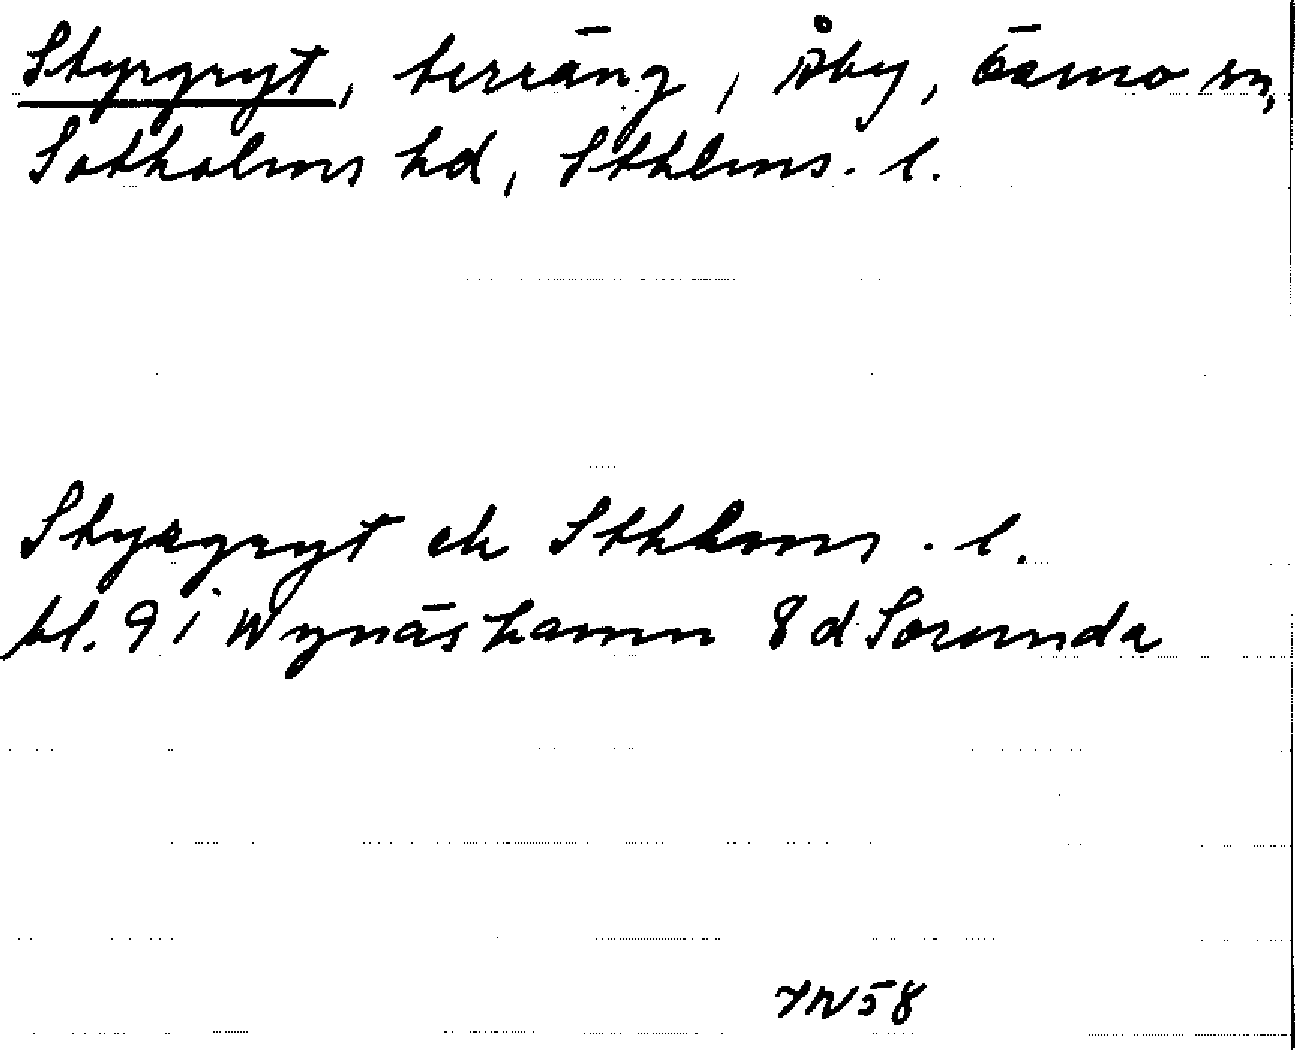 Styrgryt, terräng, Åby, Ösmo sn,
Sotholms hd, Sthlms. l.
Styrgryt ek Sthlms. l.
bl. 9 i Nynäshamn 8d Sorunda